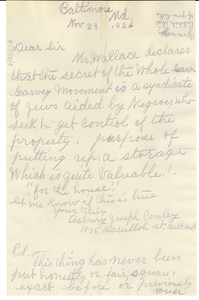 Baltimore Md.
Nov 29 1926
Dear Sir
Mr. Wallace declares
that the secret of the whole
Garvey Movement is a syndicate
of Jews aided by Negroes who
seek to get control of the
property. purpose of
putting up a storage
Which is quite Valuable.
"for the house"
Let me Know if this is true
Yours truly
Joseph
P.S. This thing has never been
put honestly or fair, square,
exact before or previously